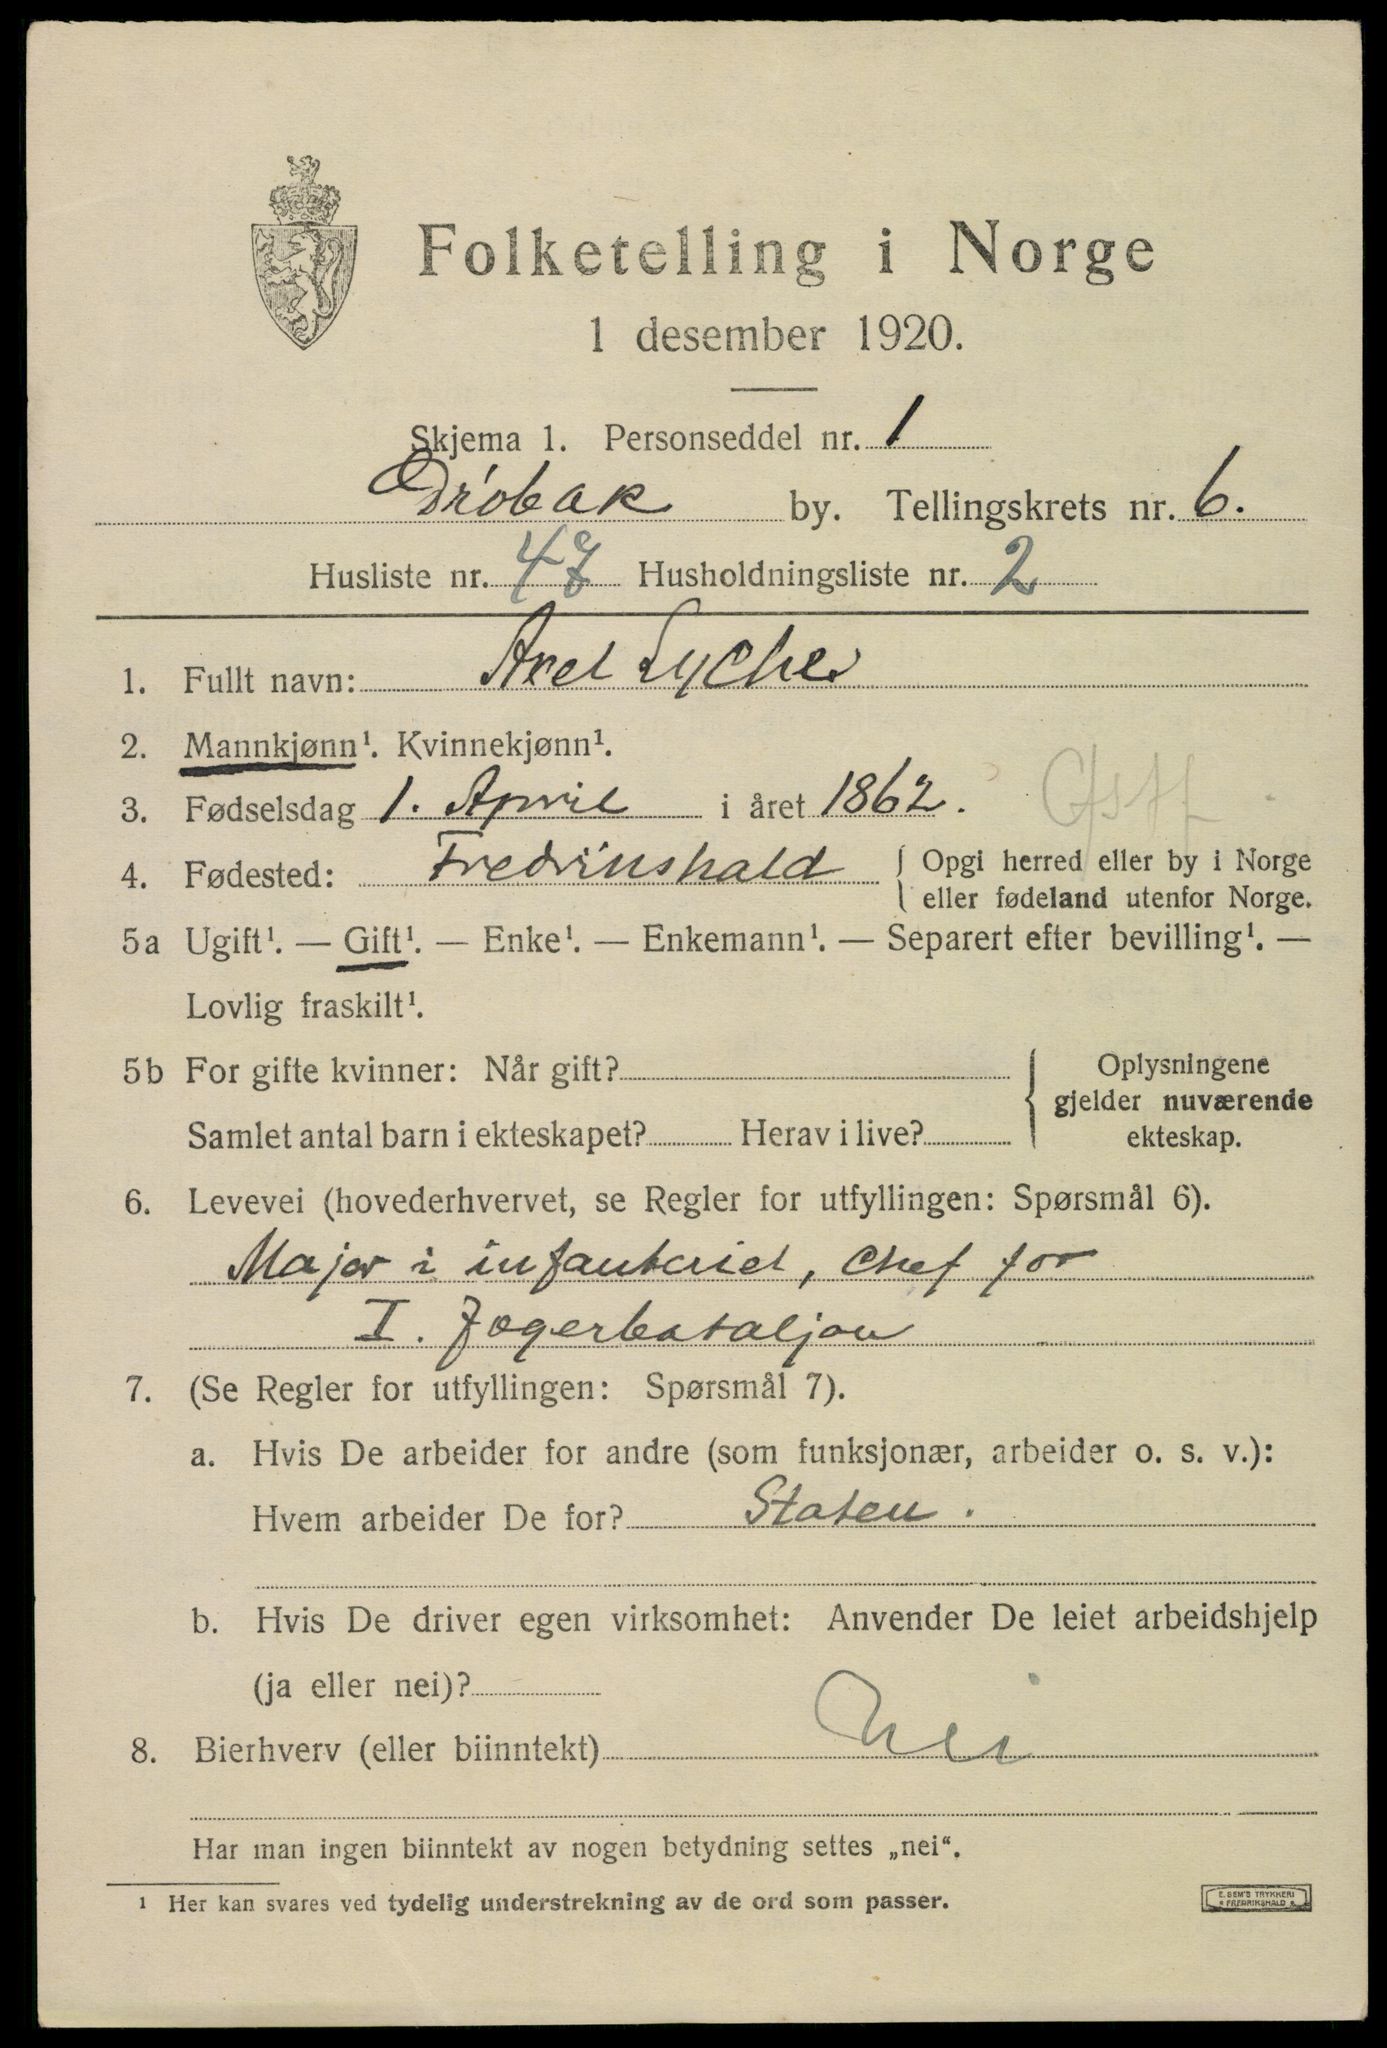 Folketelling i Norge
1 desember 1920.
Skjema 1. Personseddel nr. 1
Drøbak by. Tellingskrets nr. 6.
Husliste nr. 47 Husholdningsliste nr. 2
1. Fullt navn: Axel Lyche
2. Mannkjønn¹. Kvinnekjønn¹.
3. Fødselsdag 1. April i året 1862.
4. Fødested: Fredrikshald { Opgi herred eller by i Norge
eller fødeland utenfor Norge.
5a Ugift¹. — Gift¹. — Enke¹. — Enkemann¹. — Separert efter bevilling¹. —
Lovlig fraskilt¹.
5b For gifte kvinner: Når gift?
Samlet antal barn i ekteskapet? Herav i live?
Oplysningene
gjelder nuværende
ekteskap.
6. Levevei (hovederhvervet, se Regler for utfyllingen: Spørsmål 6).
Major i infanteriet, chef for
I. Jægerbataljon
7. (Se Regler for utfyllingen: Spørsmål 7).
a. Hvis De arbeider for andre (som funksjonær, arbeider o. s. v.):
Hvem arbeider De for? Staten.
b. Hvis De driver egen virksomhet: Anvender De leiet arbeidshjelp
(ja eller nei)?
8. Bierhverv (eller biinntekt) Nei
Har man ingen biinntekt av nogen betydning settes „nei“.
¹ Her kan svares ved tydelig understrekning av de ord som passer.
E. SEM'S TRYKKERI
FREDRIKSHALD